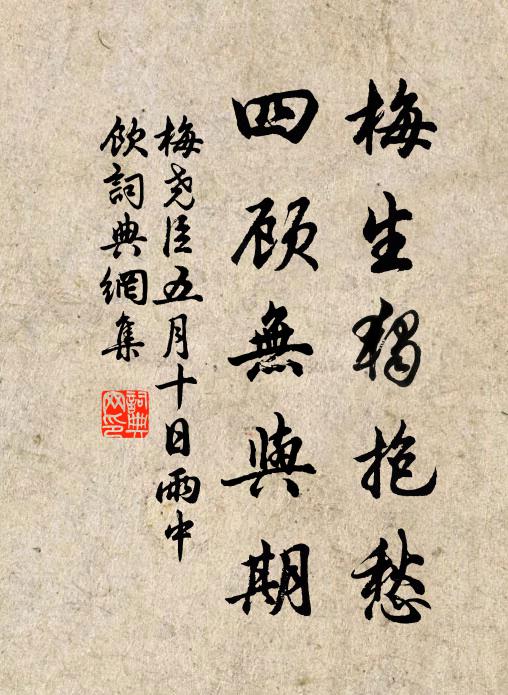 梅生獨抱愁
四顧無與期
梅堯臣五月十日雨中
飲詞典網集
詞典
网印